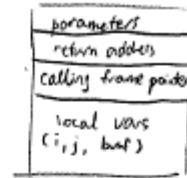 parameters
return address
calling frame pointer
local vars
(i, j, buf)